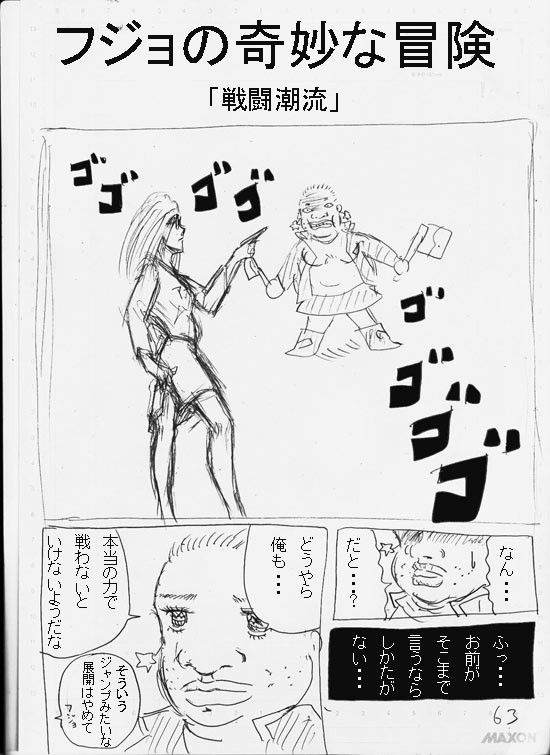 フジョの奇妙な冒険
「戦闘潮流」
ゴゴ
ゴゴ
ゴゴゴゴ
なん・・・
だと・・・？
ふっ・・・
お前が
そこまで
言うなら
しかたが
ない・・・
どうやら
俺も・・・
本当の力で
戦わないと
いけないようだな
そういう
ジャンプみたいな
展開はやめて
フジョ
63
MAXON